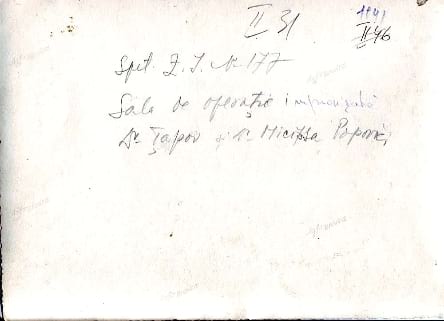 II 31
1941
II 46
Spit. Z. I. No 177
Sala de operație improvizată
Dr Țapov și Dr Micipsa Popovici